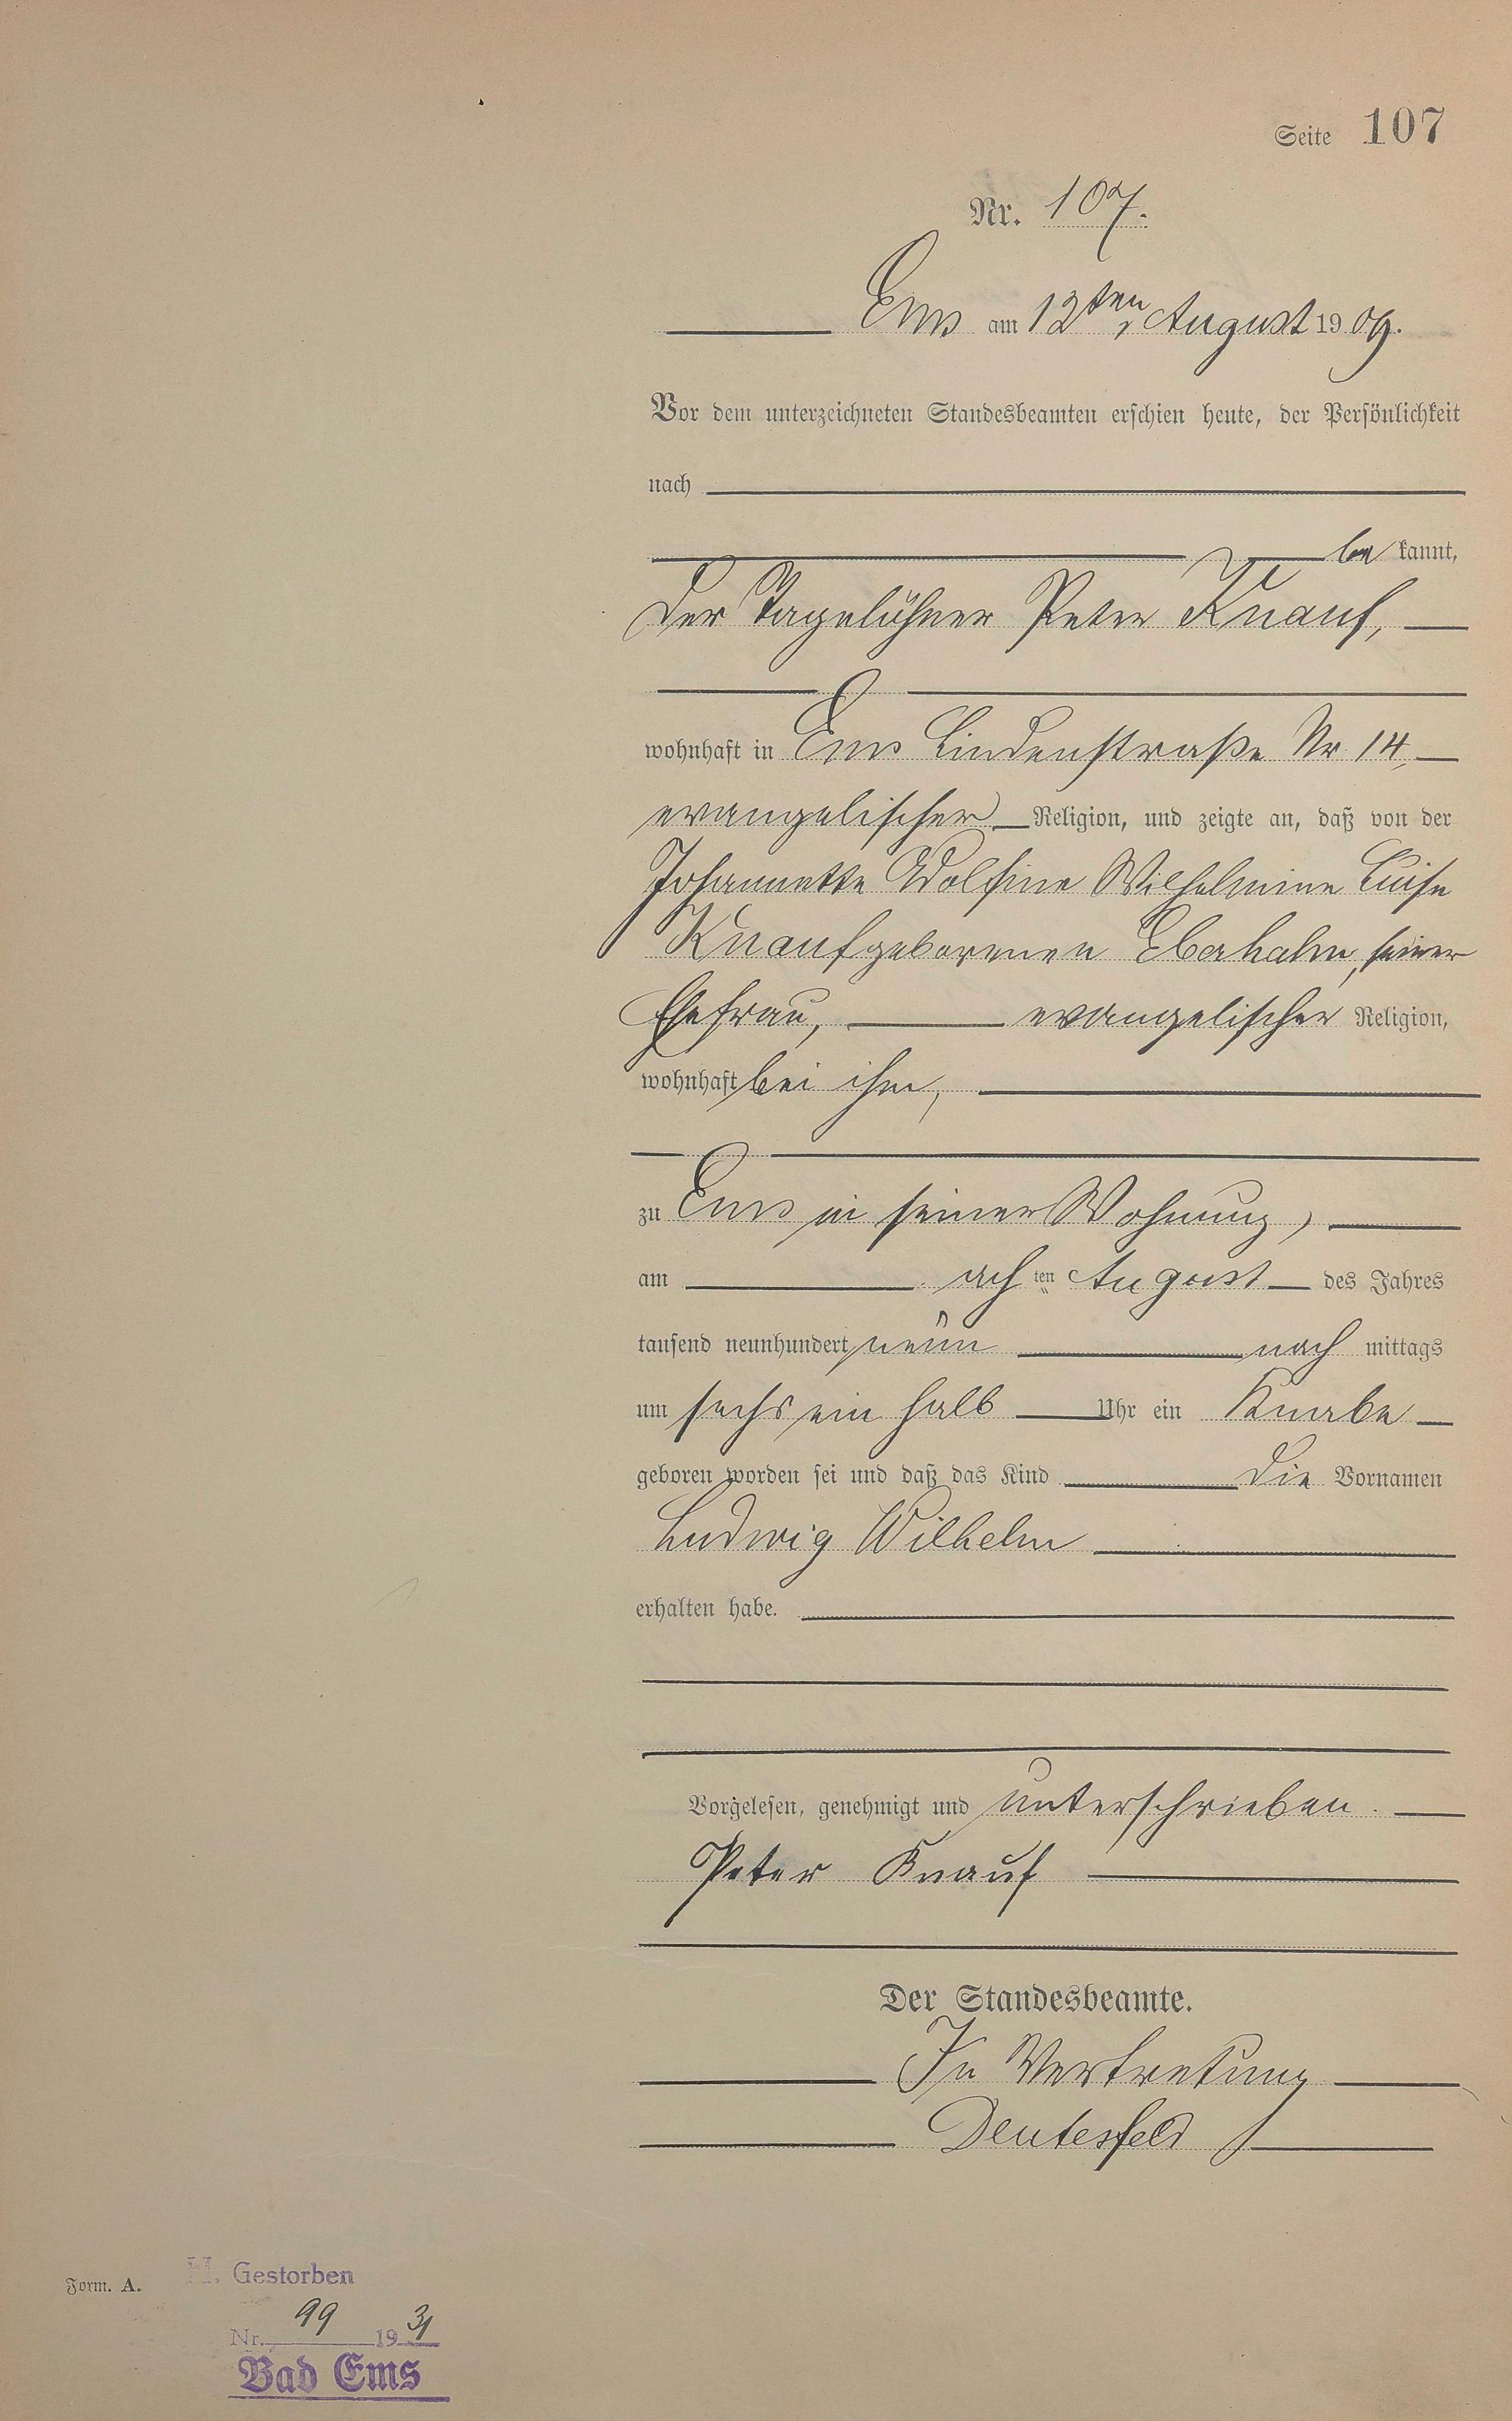 Seite 107
Nr. 107.
Ems am 12ten August 1909.
Vor dem unterzeichneten Standesbeamten erschien heute, der Persönlichkeit
nach
be kannt,
der Tagelöhner Peter Knauf,
wohnhaft in Ems Lindenstraße Nr 14,
evangelischer Religion, und zeigte an, daß von der
Johannette Adolfine Wilhelmine Luise
Knauf geborenen Eberhahn, seiner
Ehefrau, evangelischer Religion,
wohnhaft bei ihm,
zu Ems in seiner Wohnung,
am achten August des Jahres
tausend neunhundert neun nach mittags
um sechs ein halb Uhr ein Knabe
geboren worden sei und daß das Kind die Vornamen
Ludwig Wilhelm
erhalten habe.
Vorgelesen, genehmigt und unterschrieben.
Peter Knauf
Der Standesbeamte.
In Vertretung
Deutesfeld
Form. A.
H. Gestorben
Nr. 99 1931
Bad Ems